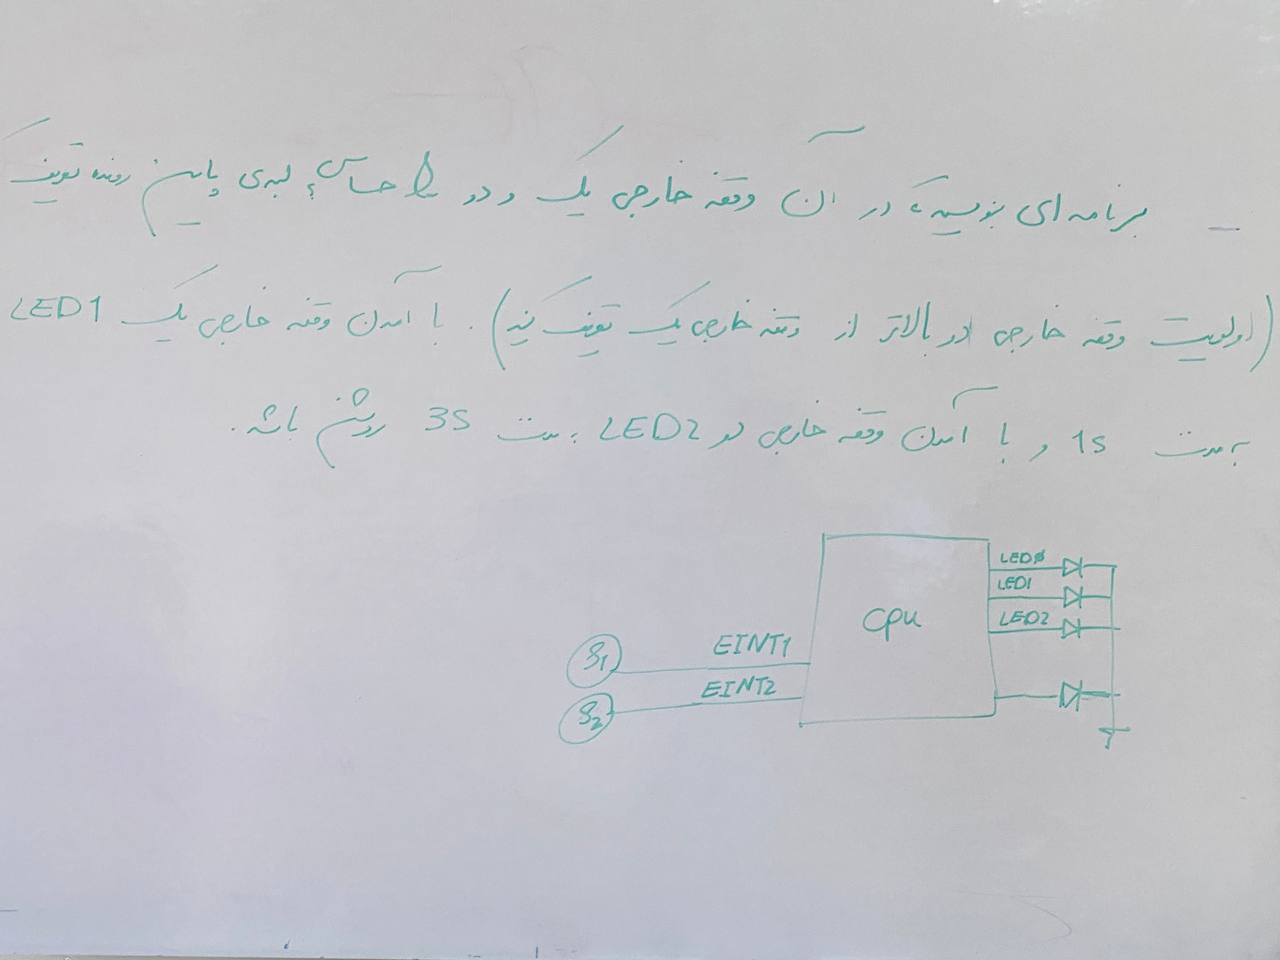 - برنامه ای بنویسید که در آن وقفه خارجی یک و دو را حساس به لبه ی پایین رونده تعریف
(اولویت وقفه خارجی دو بالاتر از وقفه خارجی یک تعریف کنید). با آمدن وقفه خارجی یک LED1
به مدت 1s و با آمدن وقفه خارجی دو LED2 به مدت 3s روشن باشد.
LED0
LED1
LED2
CPU
S1 EINT1
S2 EINT2